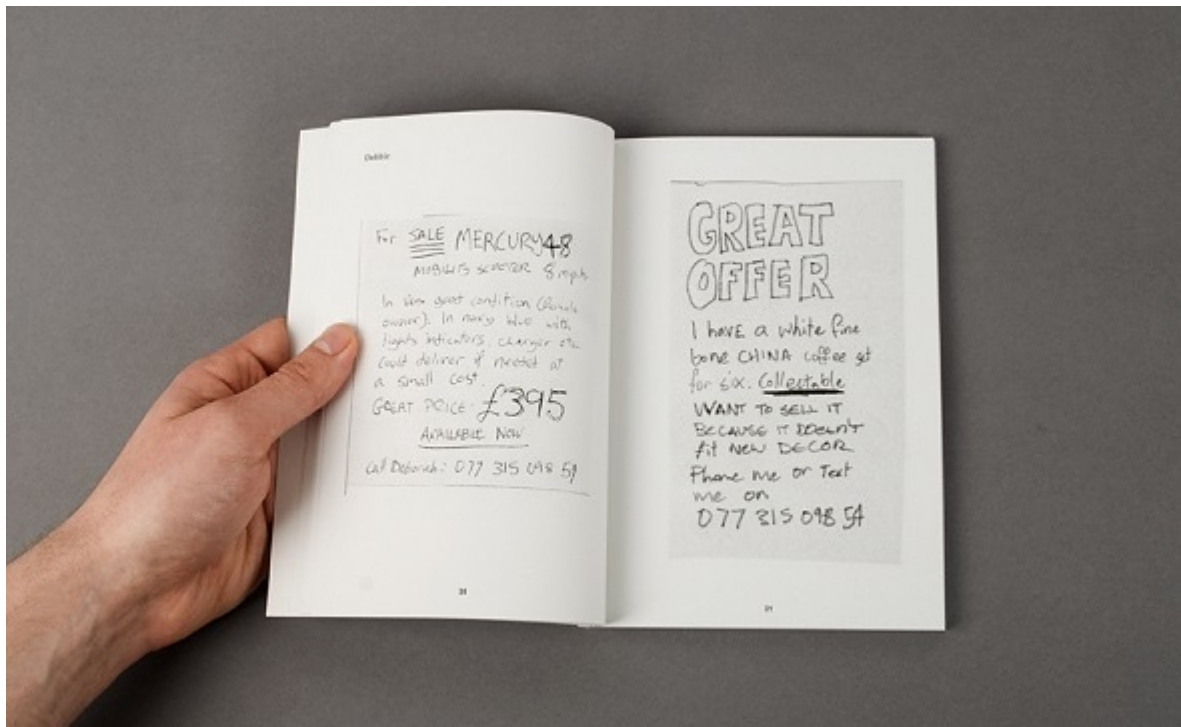 Debbie
For SALE MERCURY 48
MOBILITY SCOOTER 8 mph
In very good condition (female
owner). In navy blue with
lights indicators, charger etc.
Could deliver if needed at
a small cost.
GREAT PRICE £395
AVAILABLE NOW
Call Deborah: 077 315 098 54
GREAT
OFFER
I have a white fine
bone CHINA coffee set
for six. Collectable
WANT TO SELL IT
BECAUSE IT DOESN'T
fit NEW DECOR
Phone me or Text
me on
077 315 098 54
21